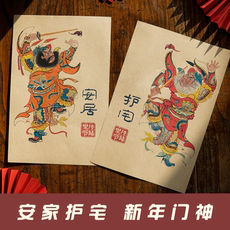 安居
护宅
安家护宅 新年门神